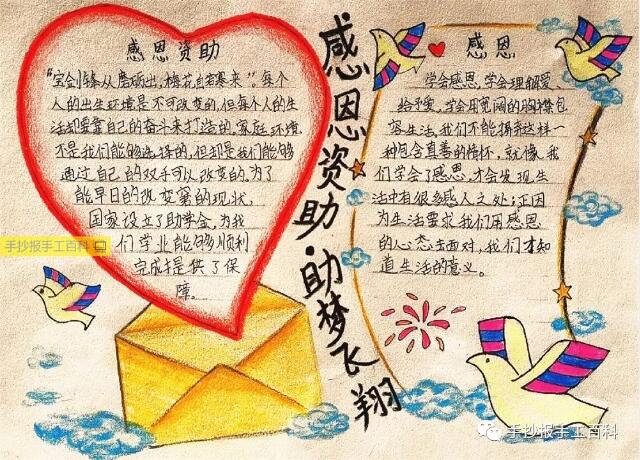 感恩资助
“宝剑锋从磨砺出，梅花香自苦寒来”。每个
人的出生环境是不可改变的，但每个人的生
活却要靠自己的奋斗来打造的，家庭环境
不是我们能够选择的，但却是我们能够
通过自己的双手可以改变的，为了
能早日的改变家的现状，
国家设立了助学金，为我
们学业能够顺利
完成提供了保
障。
感恩资助·助梦飞翔
感恩
学会感恩，学会理解爱、
给予爱，学会用宽阔的胸襟包
容生活，我们不能摒弃这样一
种包含真善的情怀，就像我
们学会了感恩，才会发现生
活中有很多感人之处；正因
为生活要求我们用感恩
的心态去面对，我们才知
道生活的意义。
手抄报手工百科
手抄报手工百科